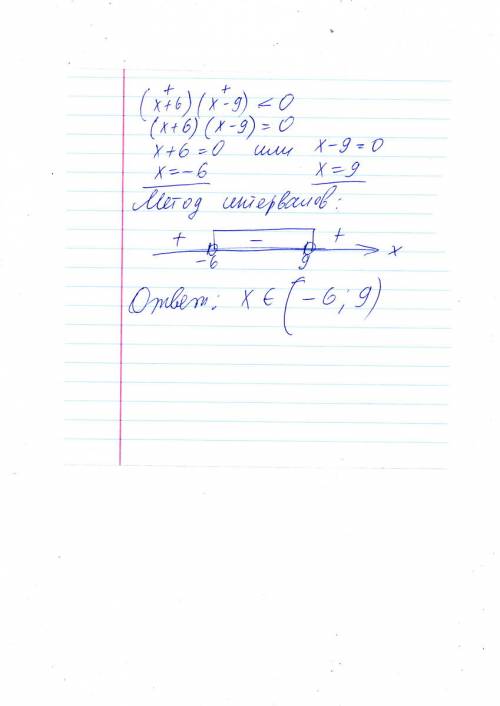 + +
(x+6)(x-9)<0
(x+6)(x-9)=0
x+6=0 или x-9=0
x=-6 x=9
Метод интервалов:
+ - +
-6 9 x
Ответ: x∈(-6;9)